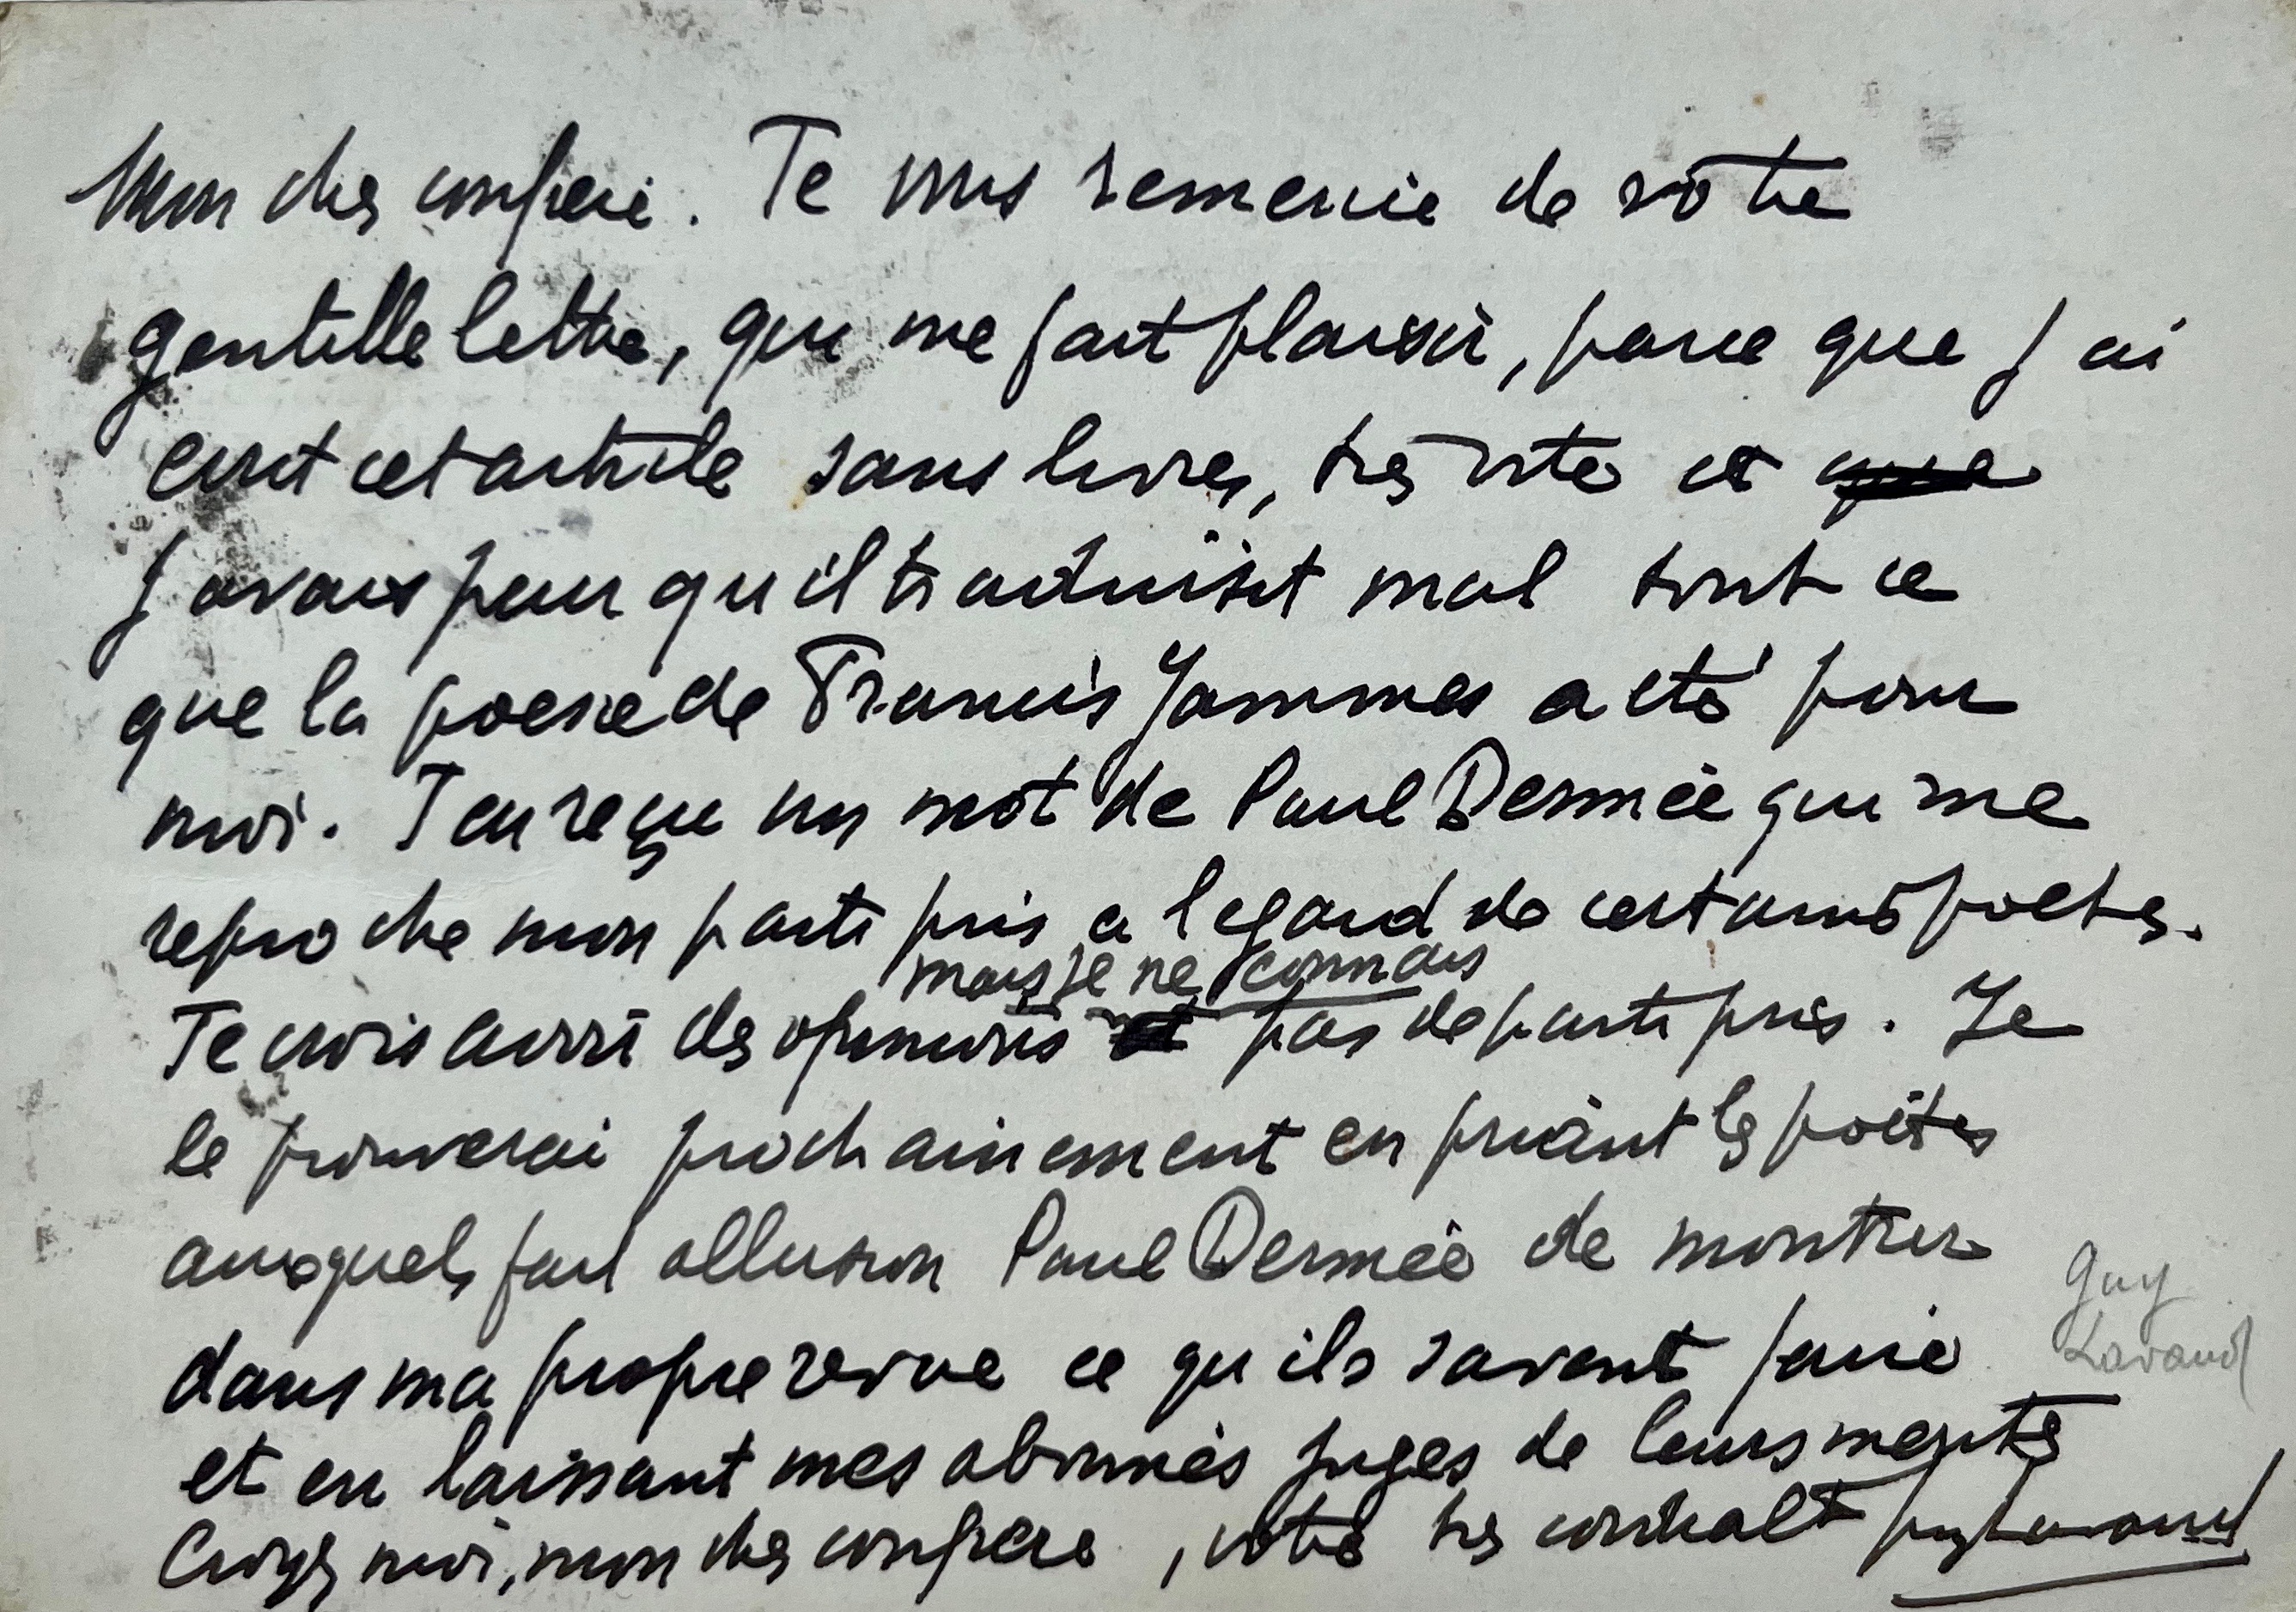 Mon cher confrère. Je vous remercie de votre
gentille lettre, qui me fait plaisir, parce que j'ai
écrit cet article sans livres, très vite et que
j'avais peur qu'il traduisit mal tout ce
que la poesie de Francis Jammes a été pour
moi. J'ai reçu un mot de Paul Dermée qui me
reproche mon parti pris a l'egard de certains poetes.
mais je ne connais
Je crois avoir des opinions et pas de parti pris. Je
le prouverai prochainement en priant les poètes
auxquels fait allusion Paul Dermée de montrer
dans ma propre revue ce qu'ils savent faire
et en laissant mes abonnés juges de leurs merites
Croyez moi, mon cher confrère, votre très cordial Guy Lavaud
Guy
Lavaud